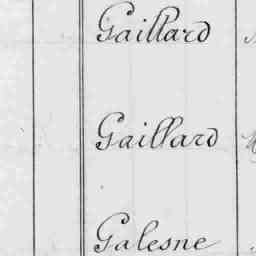 Gaillard
Gaillard
Galesne